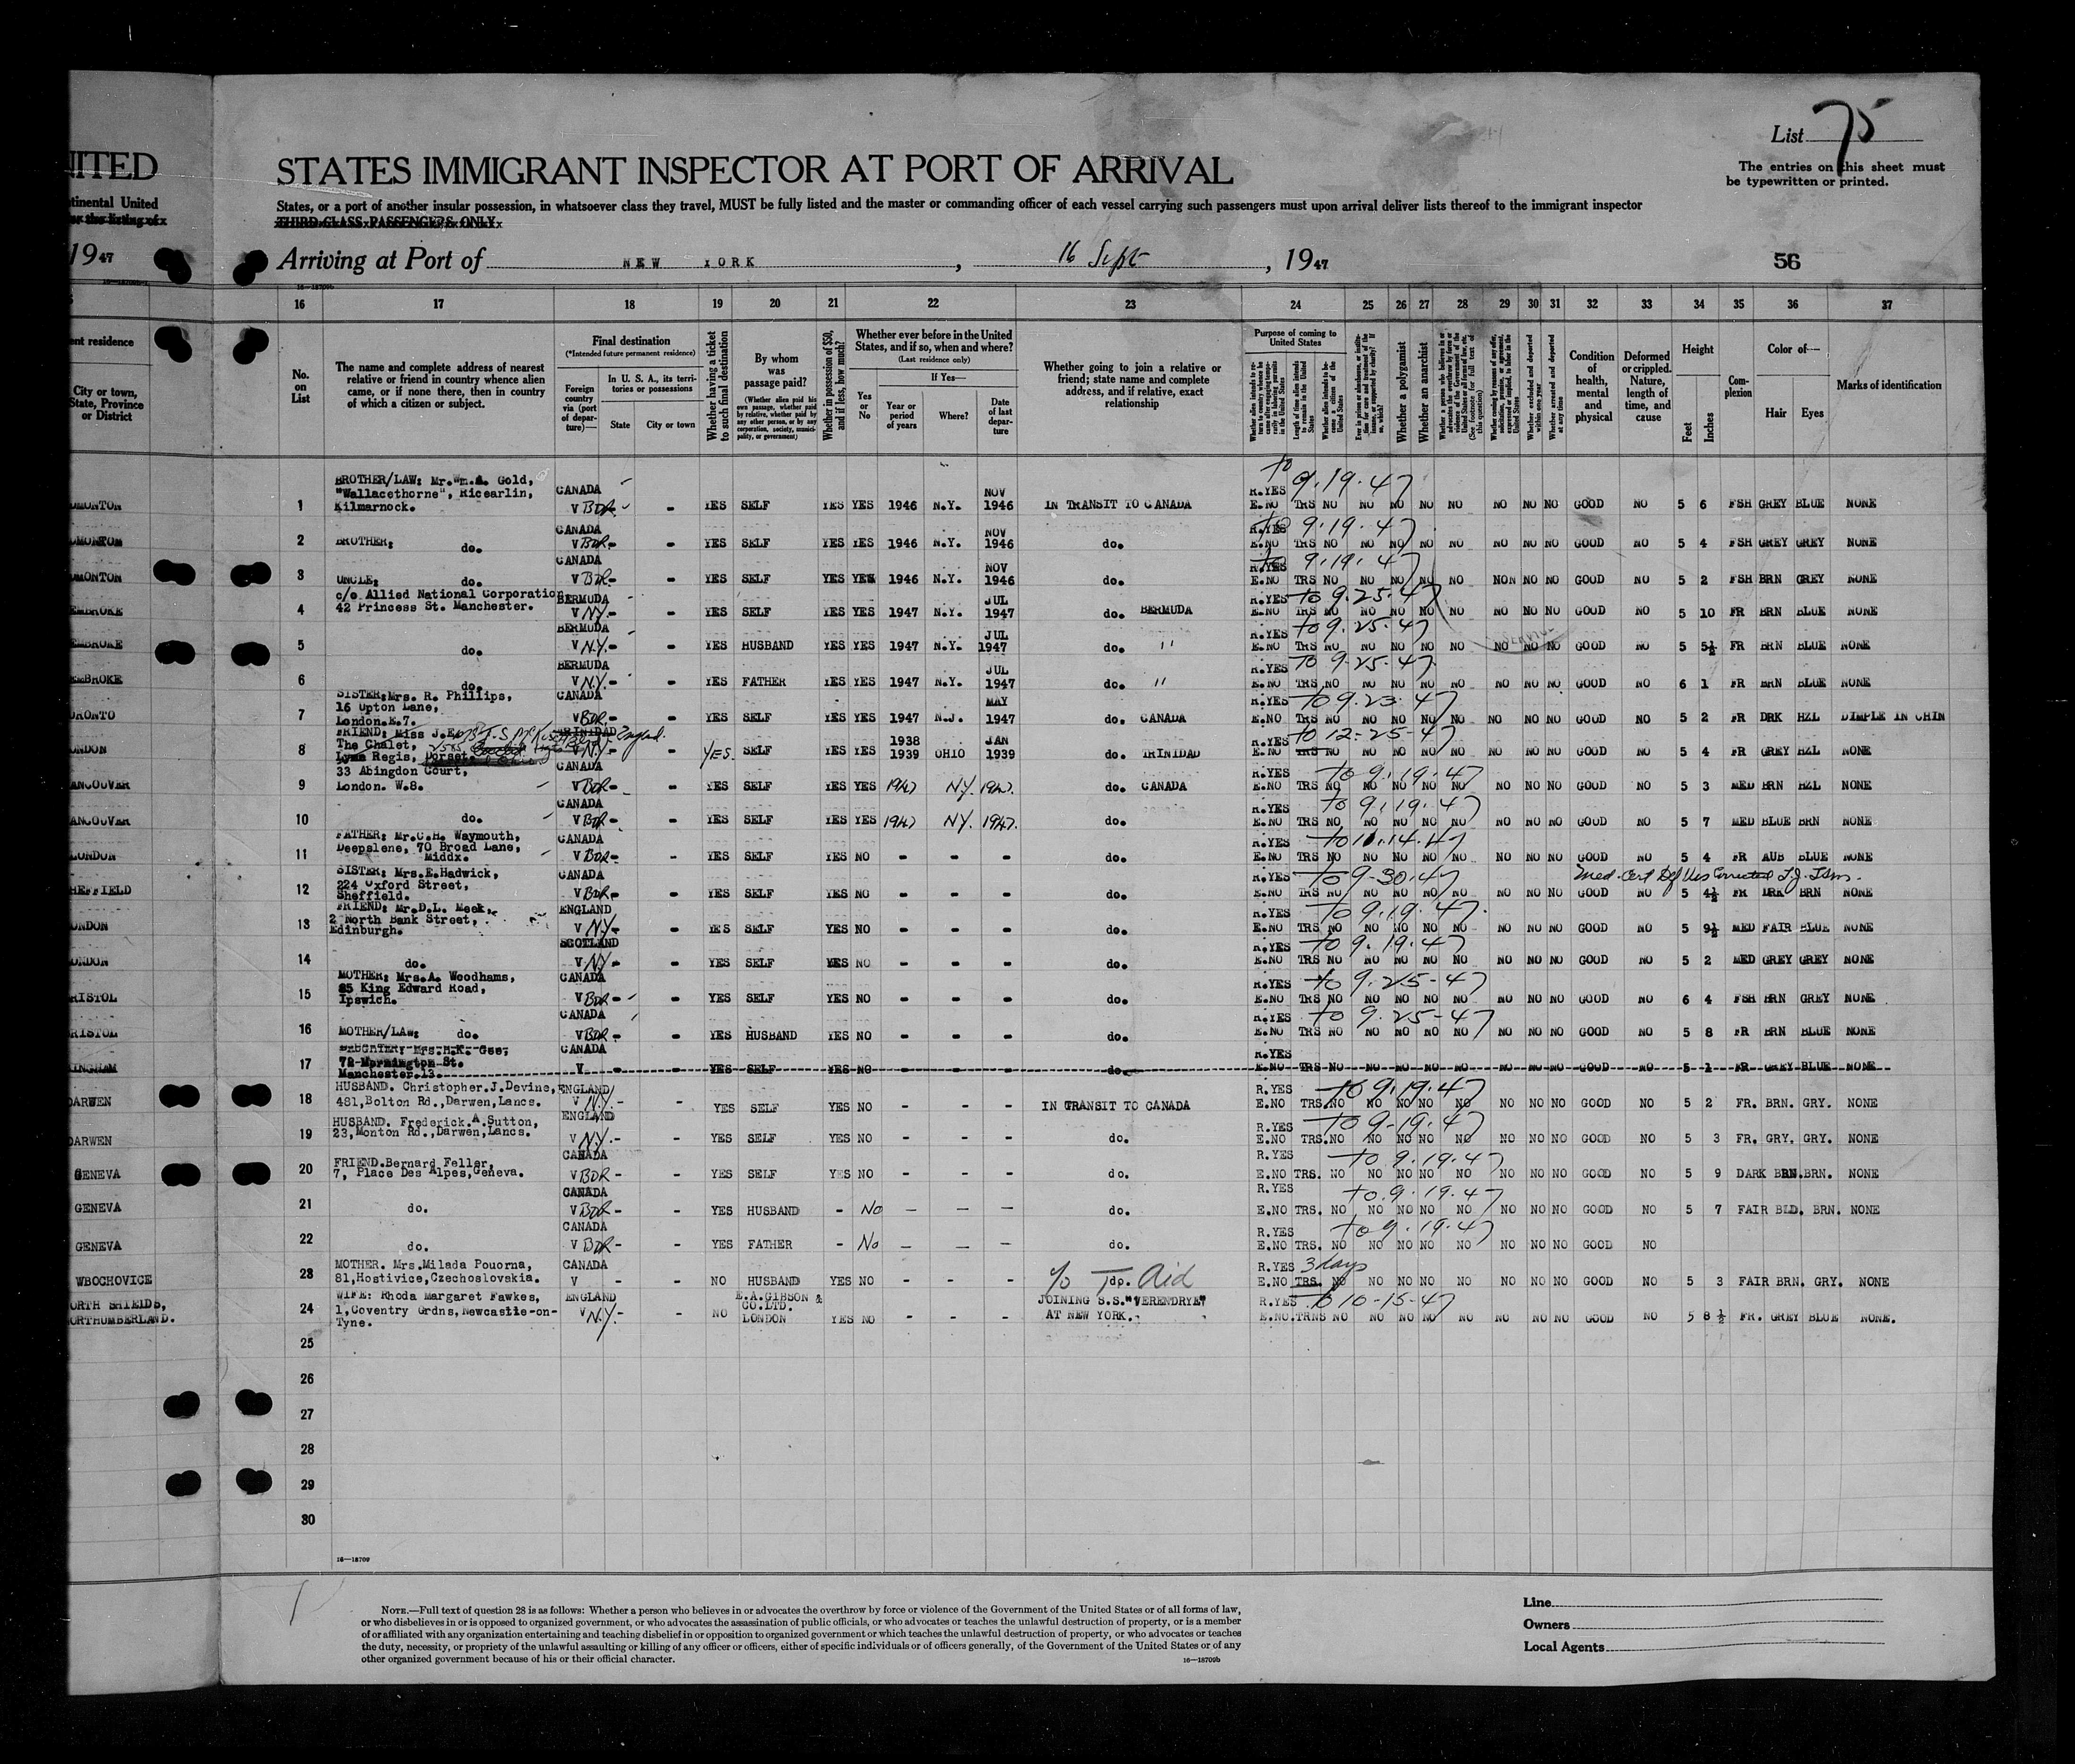 List 75
NITED
STATES IMMIGRANT INSPECTOR AT PORT OF ARRIVAL
The entries on this sheet must
be typewritten or printed.
tinental United
States, or a port of another insular possession, in whatsoever class they travel, MUST be fully listed and the master or commanding officer of each vessel carrying such passengers must upon arrival deliver lists thereof to the immigrant inspector
THIRD-CLASS PASSENGERS ONLY
1947
Arriving at Port of NEW YORK, 16 Sept, 1947
56
16 17 18 19 20 21 22 23 24 25 26 27 28 29 30 31 32 33 34 35 36 37
ent residence
City or town,
State, Province
or District
No.
on
List
The name and complete address of nearest
relative or friend in country whence alien
came, or if none there, then in country
of which a citizen or subject.
Final destination
(*Intended future permanent residence)
Foreign
country
via (port
of depar-
ture)—
In U. S. A., its terri-
tories or possessions
State
City or town
Whether having a ticket
to such final destination
By whom
was
passage paid?
(Whether alien paid his
own passage, whether paid
by relative, whether paid by
any other person, or by any
corporation, society, munici-
pality, or government)
Whether in possession of $50,
and if less, how much?
Whether ever before in the United
States, and if so, when and where?
(Last residence only)
Yes
or
No
If Yes—
Year or
period
of years
Where?
Date
of last
depar-
ture
Whether going to join a relative or
friend; state name and complete
address, and if relative, exact
relationship
Purpose of coming to
United States
Whether a polygamist
Whether an anarchist
Condition
of
health,
mental
and
physical
Deformed
or crippled.
Nature,
length of
time, and
cause
Height
Feet
Inches
Com-
plexion
Color of—
Hair
Eyes
Marks of identification
BROTHER/LAW: Mr. Wm. A. Gold,
"Wallacethorne", Ricearlin, CANADA R.YES to 9.19.47
1 Kilmarnock. V BDR - YES SELF YES YES 1946 N.Y. NOV 1946 IN TRANSIT TO CANADA E.NO TRS NO NO NO NO NO NO NO NO GOOD NO 5 6 FSH GREY BLUE NONE
CANADA R.YES 9.19.47
2 BROTHER: do. V BDR - YES SELF YES YES 1946 N.Y. NOV 1946 do. E.NO TRS NO NO NO NO NO NO NO NO GOOD NO 5 4 FSH GREY GREY NONE
CANADA R.YES 9.19.47
DMONTON 3 UNCLE: do. V BDR - YES SELF YES YES 1946 N.Y. NOV 1946 do. E.NO TRS NO NO NO NO NO NON NO NO GOOD NO 5 2 FSH BRN GREY NONE
c/o Allied National Corporation BERMUDA R.YES to 9.25.47
EMBROKE 4 42 Princess St. Manchester. V N.Y. - YES SELF YES YES 1947 N.Y. JUL 1947 do. BERMUDA E.NO TRS NO NO NO NO NO NO NO NO GOOD NO 5 10 FR BRN BLUE NONE
BERMUDA R.YES to 9.25.47
EMBROKE 5 do. V N.Y. - YES HUSBAND YES YES 1947 N.Y. JUL 1947 do. " E.NO TRS NO NO NO NO NO NO NO NO GOOD NO 5 5½ FR BRN BLUE NONE
BERMUDA R.YES to 9.25.47
EMBROKE 6 do. V N.Y. - YES FATHER YES YES 1947 N.Y. JUL 1947 do. " E.NO TRS NO NO NO NO NO NO NO NO GOOD NO 6 1 FR BRN BLUE NONE
SISTER: Mrs. R. Phillips, CANADA R.YES to 9.23.47
16 Upton Lane,
ORONTO 7 London.E.7. V BDR - YES SELF YES YES 1947 N.J. MAY 1947 do. CANADA E.NO TRS NO NO NO NO NO NO NO NO GOOD NO 5 2 FR DRK HZL DIMPLE IN CHIN
FRIEND: Miss J. TRINIDAD England R.YES to 12-25-47
The Chalet,
ONDON 8 Lyme Regis, Dorset. V N.Y. - YES. SELF YES YES 1938 1939 OHIO JAN 1939 do. TRINIDAD E.NO TRS NO NO NO NO NO NO NO NO GOOD NO 5 4 FR GREY HZL NONE
33 Abingdon Court, CANADA R.YES to 9.19.47
ANCOUVER 9 London. W.8. V BDR - YES SELF YES YES 1947 N.Y. 1947. do. CANADA E.NO TRS NO NO NO NO NO NO NO NO GOOD NO 5 3 MED BRN HZL NONE
CANADA R.YES to 9.19.47
ANCOUVER 10 do. V BDR - YES SELF YES YES 1947 N.Y. 1947. do. E.NO TRS NO NO NO NO NO NO NO NO GOOD NO 5 7 MED BLUE BRN NONE
FATHER: Mr.C.H. Waymouth, CANADA R.YES to 11.14.47
Deepslene, 70 Broad Lane,
LONDON 11 Middx. V BDR - - YES SELF YES NO - - - do. E.NO TRS NO NO NO NO NO NO NO NO GOOD NO 5 4 FR AUB BLUE NONE
SISTER: Mrs.E.Hadwick, CANADA R.YES to 9-30-47 Med. Cert Def Vis Corrected
224 Oxford Street,
HEFFIELD 12 Sheffield. V BDR - - YES SELF YES NO - - - do. E.NO TRS NO NO NO NO NO NO NO NO GOOD NO 5 4½ FR DRK BRN NONE
FRIEND: Mr.D.L. Meek, ENGLAND R.YES to 9.19.47
2 North Bank Street,
ONDON 13 Edinburgh. V N.Y. - - YES SELF YES NO - - - do. E.NO TRS NO NO NO NO NO NO NO NO GOOD NO 5 9½ MED FAIR BLUE NONE
SCOTLAND R.YES to 9.19.47
ONDON 14 do. V N.Y. - - YES SELF YES NO - - - do. E.NO TRS NO NO NO NO NO NO NO NO GOOD NO 5 2 MED GREY GREY NONE
MOTHER: Mrs.A. Woodhams, CANADA R.YES to 9.25-47
85 King Edward Road,
RISTOL 15 Ipswich. V BDR - - YES SELF YES NO - - - do. E.NO TRS NO NO NO NO NO NO NO NO GOOD NO 6 4 FSH BRN GREY NONE
CANADA R.YES to 9.25-47
RISTOL 16 MOTHER/LAW: do. V BDR - - YES HUSBAND YES NO - - - do. E.NO TRS NO NO NO NO NO NO NO NO GOOD NO 5 8 FR BRN BLUE NONE
DAUGHTER: Mrs.H.K. Gee, CANADA R.YES
72 Mornington St.
INGHAM 17 Manchester.13. V YES SELF YES NO do. E.NO TRS NO NO NO NO NO NO NO NO GOOD NO 5 1 FR GREY BLUE NONE
HUSBAND. Christopher.J.Devine, ENGLAND R.YES to 9.19.47
DARWEN 18 481,Bolton Rd.,Darwen,Lancs. V N.Y. - - YES SELF YES NO - - - IN TRANSIT TO CANADA E.NO TRS.NO NO NO NO NO NO NO NO GOOD NO 5 2 FR. BRN. GRY. NONE
HUSBAND. Frederick.A.Sutton, ENGLAND R.YES to 9-19-47
DARWEN 19 23,Monton Rd.,Darwen,Lancs. V N.Y. - - YES SELF YES NO - - - do. E.NO TRS.NO NO NO NO NO NO NO NO GOOD NO 5 3 FR. GRY. GRY. NONE
FRIEND.Bernard Feller, CANADA R.YES to 9.19.47
GENEVA 20 7, Place Des Alpes,Geneva. V BDR - - YES SELF YES NO - - - do. E.NO TRS. NO NO NO NO NO NO NO NO GOOD NO 5 9 DARK BRN.BRN. NONE
CANADA R.YES to.9.19.47
GENEVA 21 do. V BDR - - YES HUSBAND - No - - - do. E.NO TRS. NO NO NO NO NO NO NO NO GOOD NO 5 7 FAIR BLD. BRN. NONE
CANADA R.YES to 9.19.47
GENEVA 22 do. V BDR - - YES FATHER - No - - - do. E.NO TRS. NO NO NO NO NO NO NO NO GOOD NO
MOTHER. Mrs.Milada Pouorna, CANADA R.YES 3 days
WBOCHOVICE 23 81,Hostivice,Czechoslovakia. V - - NO HUSBAND YES NO - - - do. Aid E.NO TRS. NO NO NO NO NO NO NO NO GOOD NO 5 3 FAIR BRN. GRY. NONE
ORTH SHIELDS, WIFE: Rhoda Margaret Fawkes, ENGLAND E.A.GIBSON & JOINING S.S."VERENDRYE" R.YES to 10-15-47
ORTHUMBERLAND. 24 1,Coventry Grdns,Newcastle-on-Tyne. V N.Y. - - NO CO.LTD. LONDON YES NO - - - AT NEW YORK. E.NO.TRNS NO NO NO NO NO NO NO NO GOOD NO 5 8½ FR. GREY BLUE NONE.
25
26
27
28
29
30
16—18709
NOTE.—Full text of question 28 is as follows: Whether a person who believes in or advocates the overthrow by force or violence of the Government of the United States or of all forms of law,
or who disbelieves in or is opposed to organized government, or who advocates the assassination of public officials, or who advocates or teaches the unlawful destruction of property, or is a member
of or affiliated with any organization entertaining and teaching disbelief in or opposition to organized government or which teaches the unlawful destruction of property, or who advocates or teaches
the duty, necessity, or propriety of the unlawful assaulting or killing of any officer or officers, either of specific individuals or of officers generally, of the Government of the United States or of any
other organized government because of his or their official character.
16—18709b
Line
Owners
Local Agents